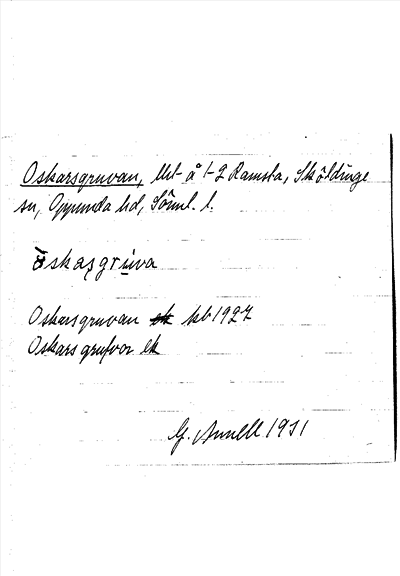 Oskarsgruvan, Ut å 1-2 Ramsta, Sköldinge
sn, Oppunda hd, Söml. l.
òskaşgrùva
Oskarsgruvan kb 1927
Oskarsgrufvor ek
G. Annell 1931